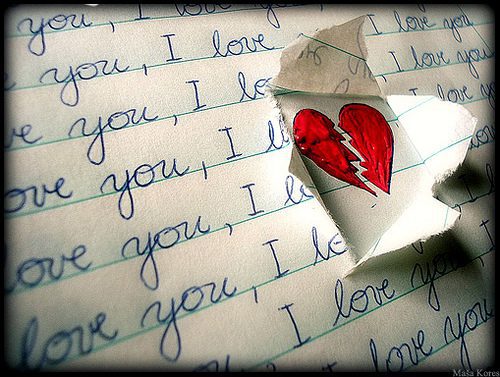 you, I love you
you, I love I love you
ve you, I lo I love you
ove you, I l love you
ove you, I l
love you, I lo you, I
love you, I love you
I love you
Maša Kores